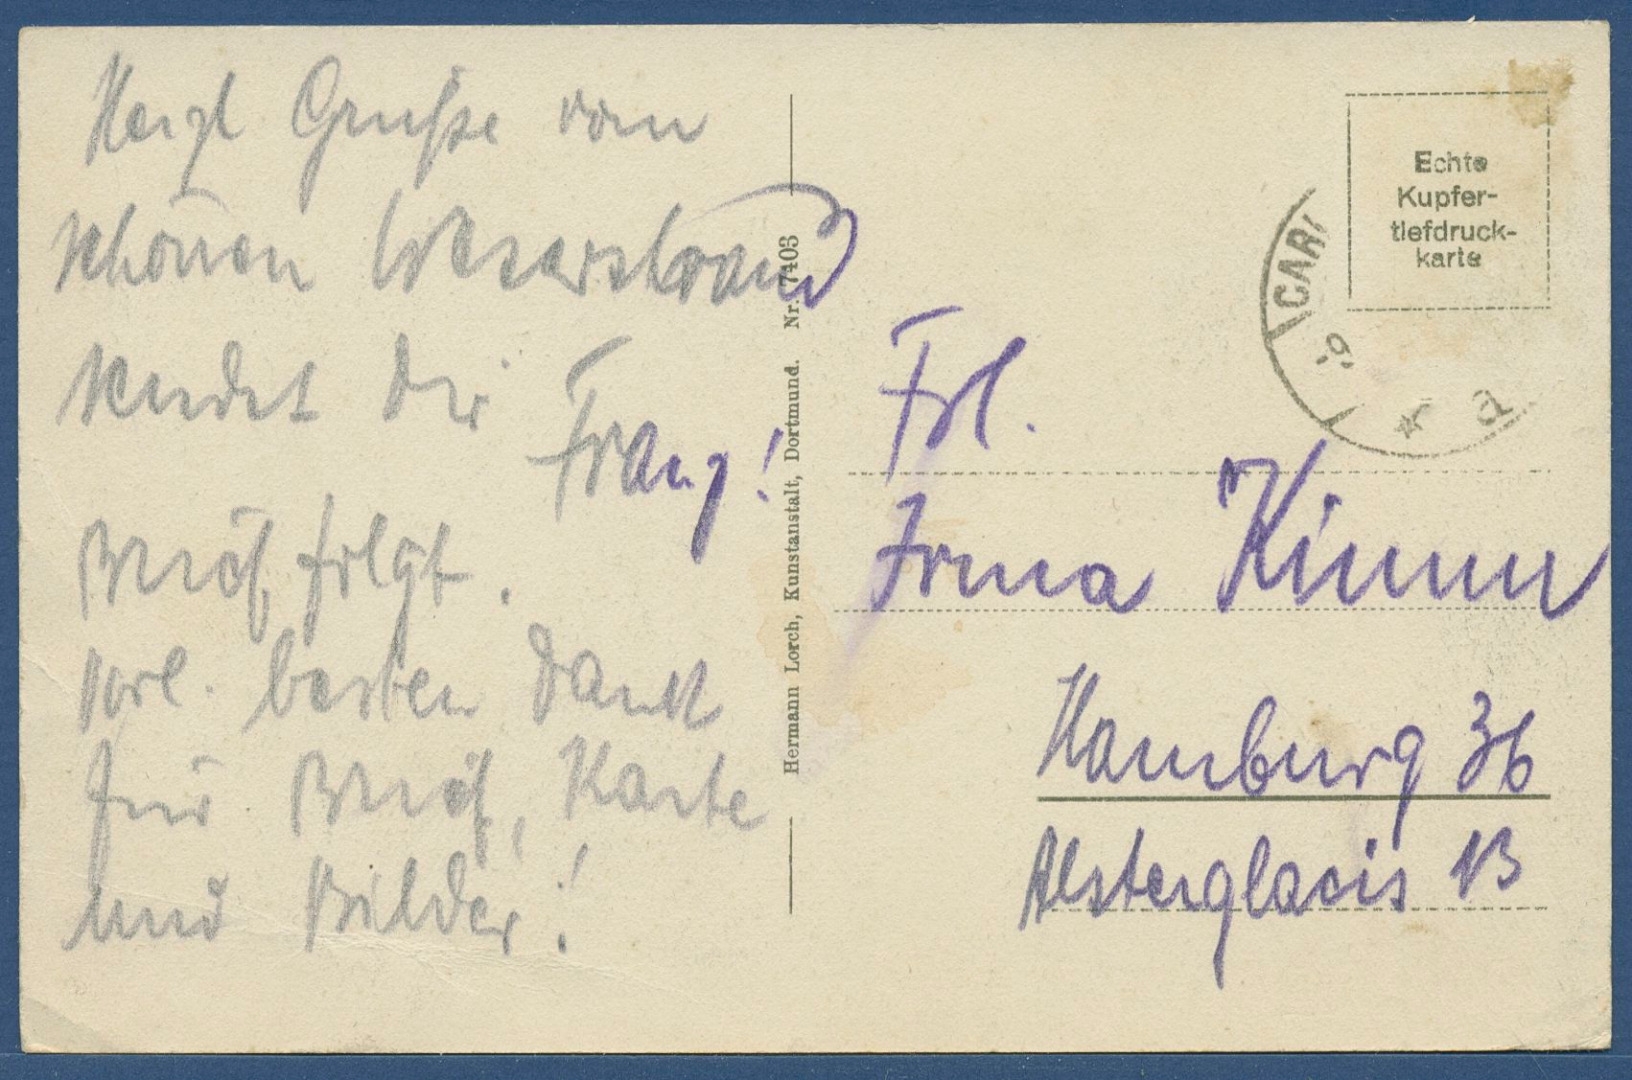 Herzl Grüße vom
schönen Weserstrand
sendet dir
Franz!
Brief folgt.
Vorl. besten Dank
für Brief, Karte
und Bilder!
Hermann Lorch, Kunstanstalt, Dortmund. Nr. 7403
Echte
Kupfer-
tiefdruck-
karte
CARL
-9
a
Frl.
Irma Kimm
Hamburg 36
Alsterglacis 13